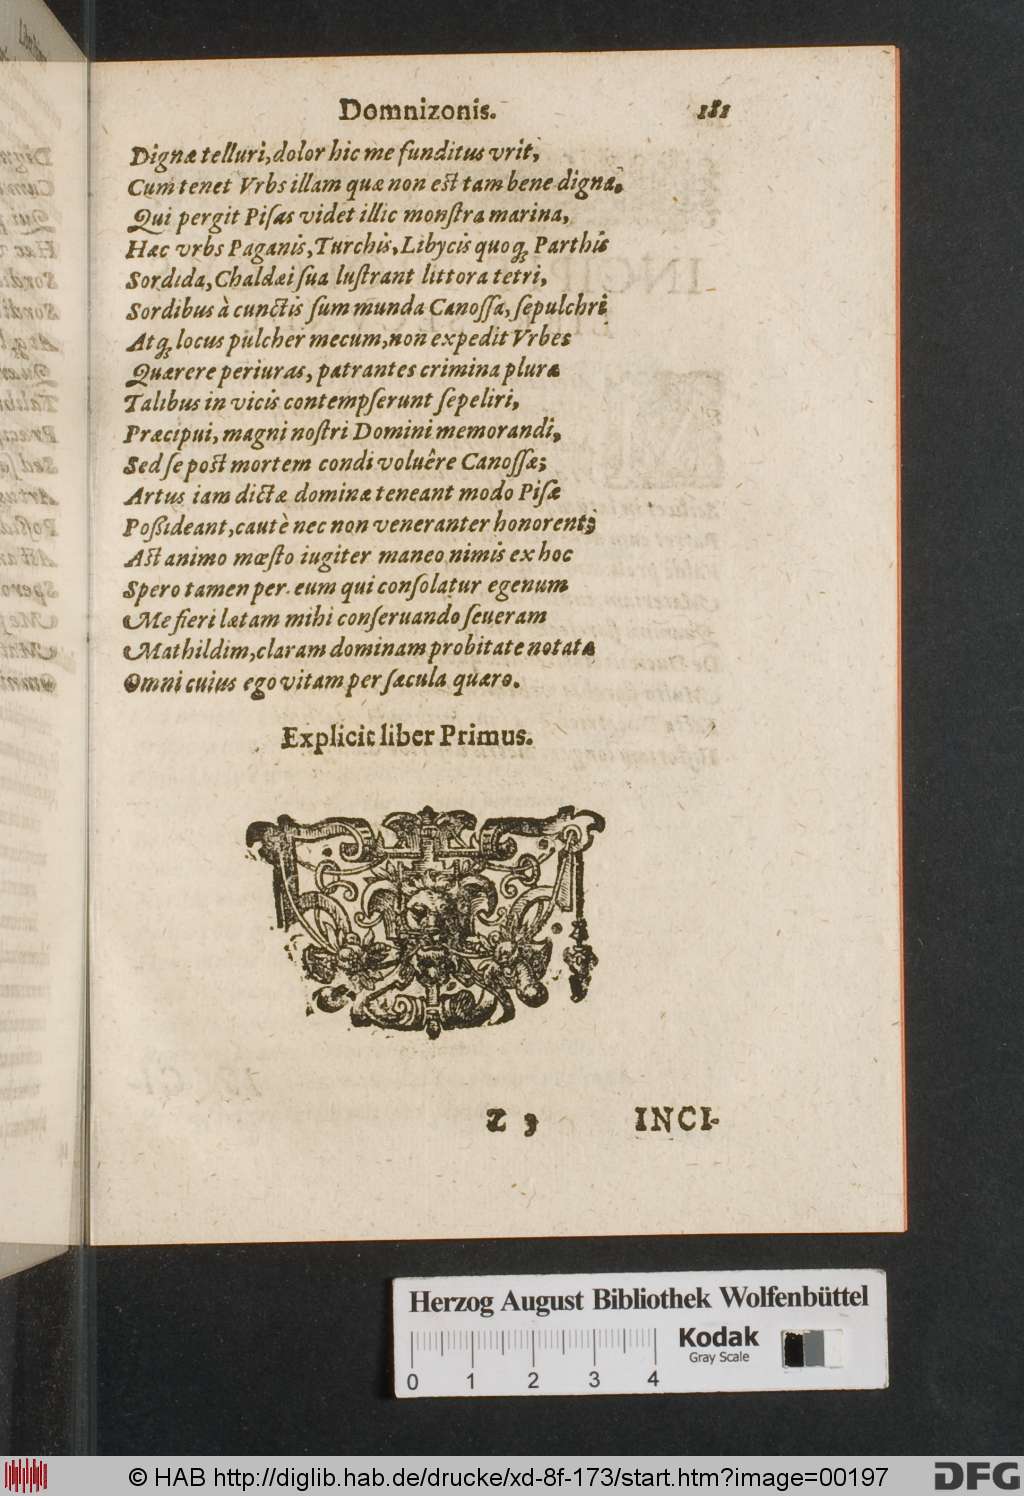 Domnizonis. 181
Dignæ telluri, dolor hic me funditus vrit,
Cum tenet Vrbs illam quæ non est tam bene digna.
Qui pergit Pisas videt illic monstra marina,
Hæc vrbs Paganis, Turchis, Libycis quoq; Parthis
Sordida, Chaldæi sua lustrant littora tetri,
Sordibus à cunctis sum munda Canossa, sepulchri
Atq; locus pulcher mecum, non expedit Vrbes
Quærere periuras, patrantes crimina plura
Talibus in vicis contempserunt sepeliri,
Præcipui, magni nostri Domini memorandi,
Sed se post mortem condi voluêre Canossæ;
Artus iam dictæ dominæ teneant modo Pisæ
Possideant, cautè nec non veneranter honorent;
Ast animo mœsto iugiter maneo nimis ex hoc
Spero tamen per eum qui consolatur egenum
Me fieri lætam mihi conseruando seueram
Mathildim, claram dominam probitate notata
Omni cuius ego vitam per sæcula quæro.
Explicit liber Primus.
Z 3 INCI-
Herzog August Bibliothek Wolfenbüttel
Kodak
Gray Scale
0 1 2 3 4
© HAB http://diglib.hab.de/drucke/xd-8f-173/start.htm?image=00197
DFG